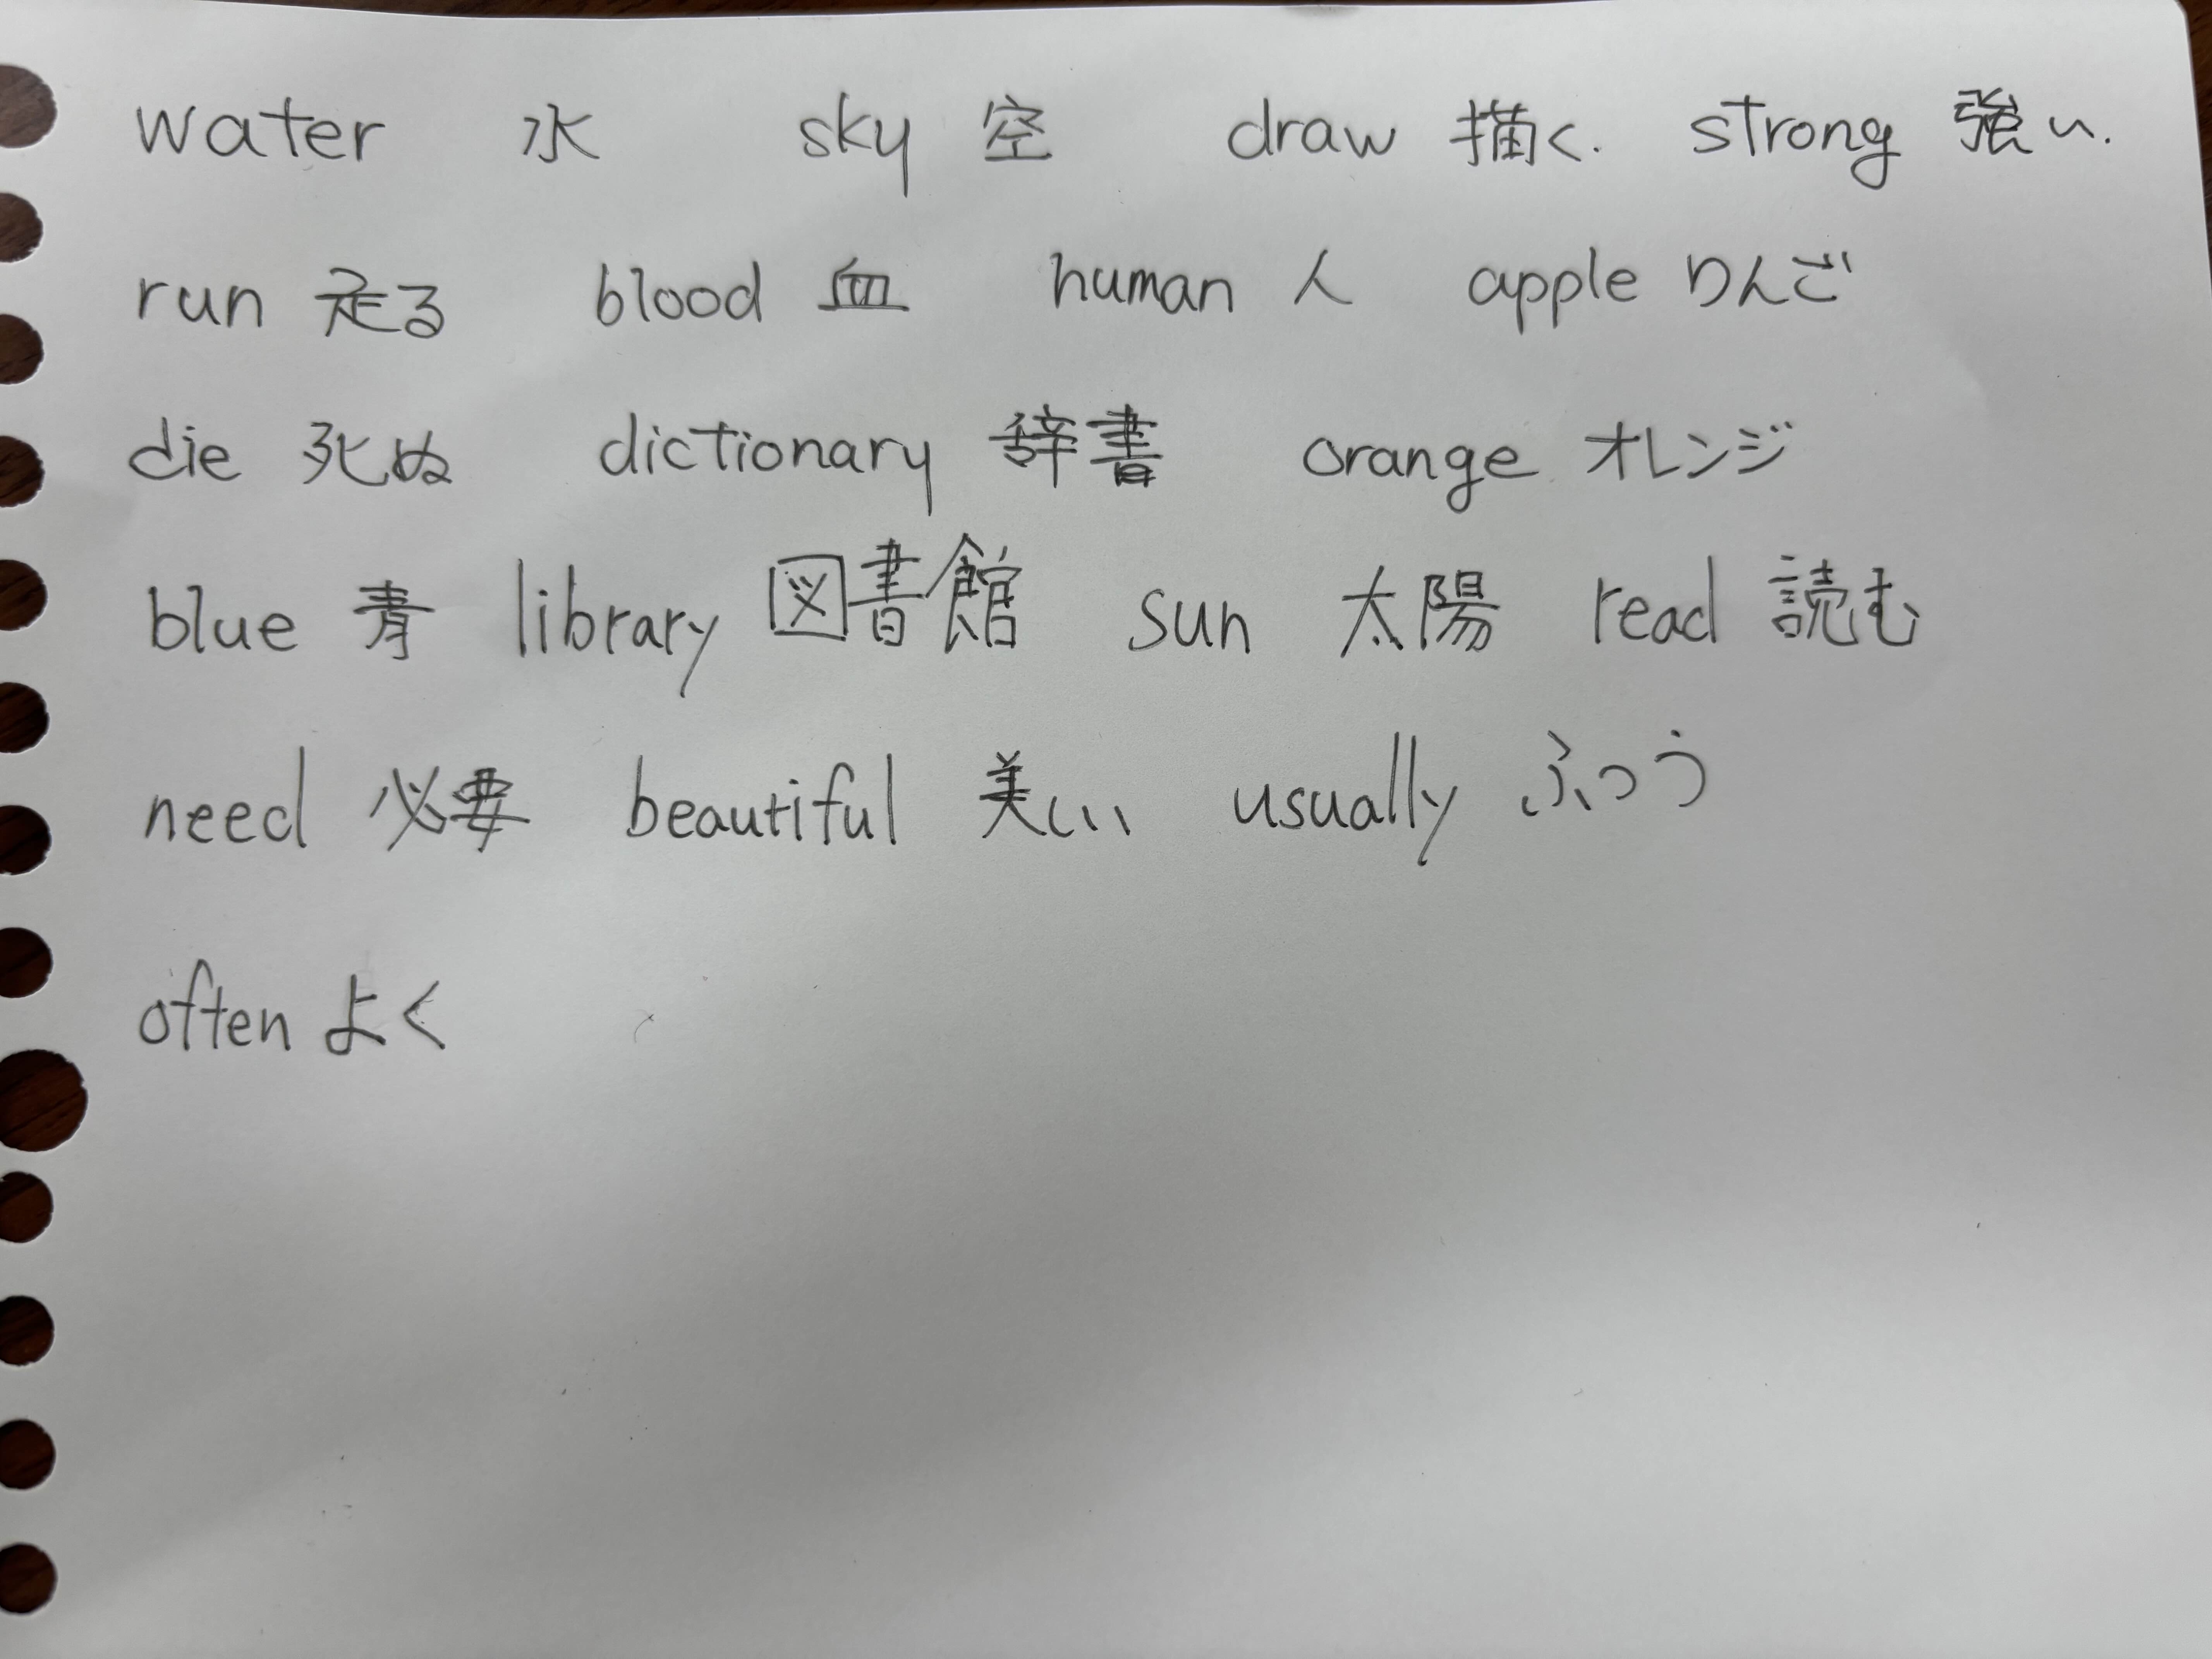 water 水 sky 空 draw 描く. strong 強い.
run 走る blood 血 human 人 apple りんご
die 死ぬ dictionary 辞書 orange オレンジ
blue 青 library 図書館 sun 太陽 read 読む
need 必要 beautiful 美しい usually ふつう
often よく